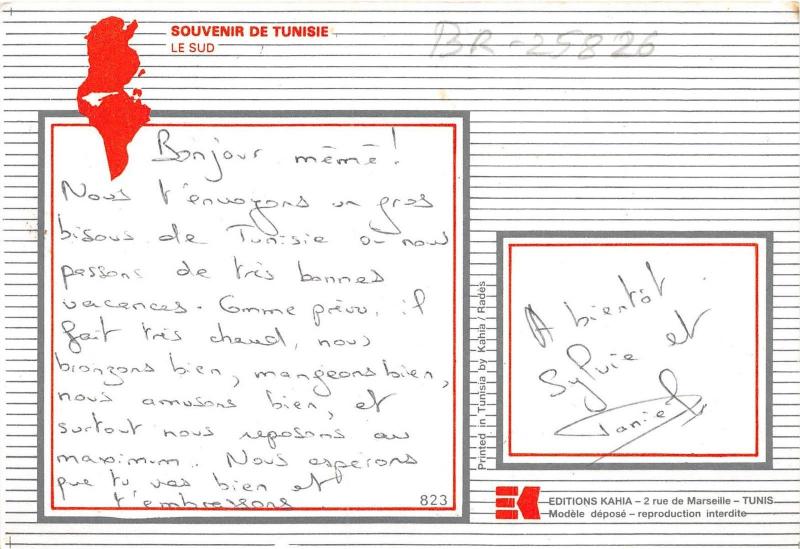 SOUVENIR DE TUNISIE
LE SUD
BR-25826
Bonjour mémé!
Nous t'envoyons un gros
bisous de Tunisie où nous
passons de très bonnes
vacances. Comme prévu, il
fait très chaud, nous
bronzons bien, mangeons bien,
nous amusons bien, et
surtout nous reposons au
maximum. Nous espérons
que tu vas bien et
t'embrassons
823
Printed in Tunisia by Kahia / Radès
A bientôt.
Sylvie et
Daniel
EDITIONS KAHIA – 2 rue de Marseille – TUNIS
Modèle déposé – reproduction interdite